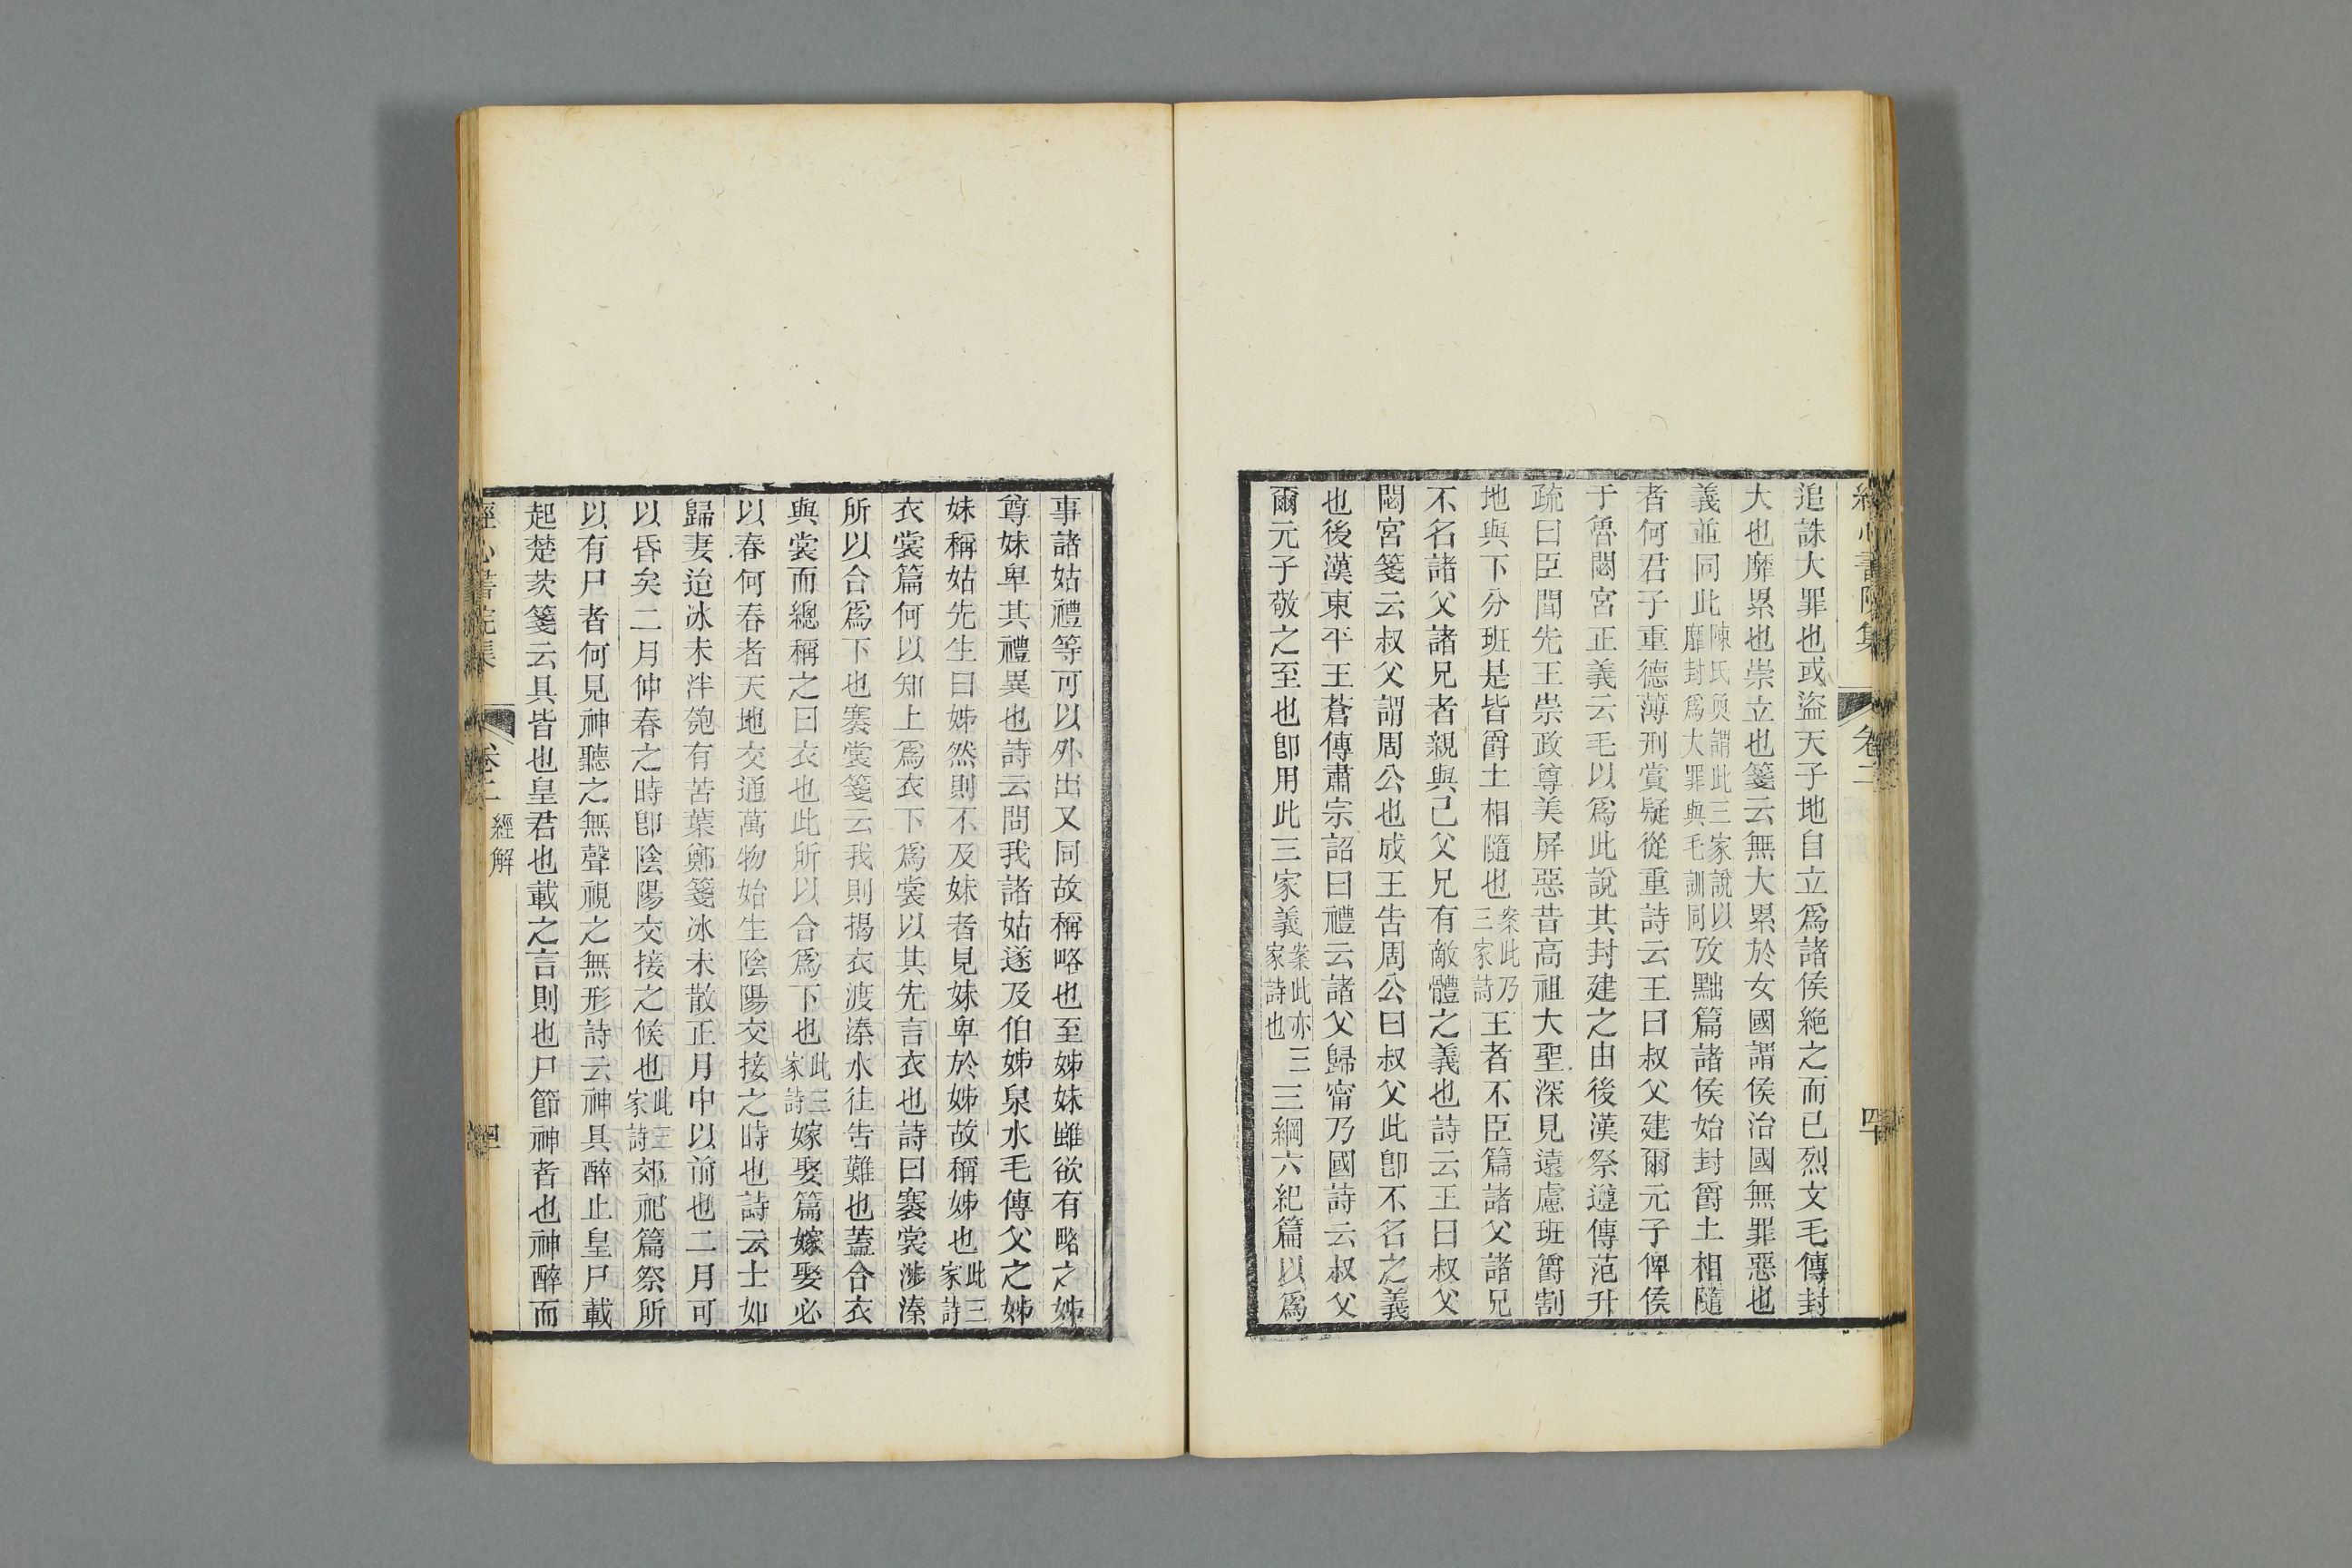 經心書院集 卷二 四
追誅大罪也或盜天子地自立爲諸侯絶之而已烈文毛傳封
大也靡累也崇立也箋云無大累於女國謂侯治國無罪惡也
義並同此陳氏奐謂此三家說以靡封爲大罪與毛訓同攷黜篇諸侯始封爵土相隨
者何君子重德薄刑賞疑從重詩云王曰叔父建爾元子俾侯
于魯閟宮正義云毛以爲此說其封建之由後漢祭遵傳范升
疏曰臣聞先王崇政尊美屏惡昔高祖大聖深見遠慮班爵割
地與下分班是皆爵土相隨也案此乃三家詩王者不臣篇諸父諸兄
不名諸父諸兄者親與己父兄有敵體之義也詩云王曰叔父
閟宮箋云叔父謂周公也成王告周公曰叔父此卽不名之義
也後漢東平王蒼傳肅宗詔曰禮云諸父歸甯乃國詩云叔父
爾元子敬之至也卽用此三家義案此亦三家詩也三綱六紀篇以爲
事諸姑禮等可以外出又同故稱略也至姊妹雖欲有略之姊
尊妹卑其禮異也詩云問我諸姑遂及伯姊泉水毛傳父之姊
妹稱姑先生曰姊然則不及妹者見妹卑於姊故稱姊也此三家詩
衣裳篇何以知上爲衣下爲裳以其先言衣也詩曰褰裳涉溱
所以合爲下也褰裳箋云我則揭衣渡溱水往告難也蓋合衣
與裳而總稱之曰衣也此所以合爲下也此三家詩嫁娶篇嫁娶必
以春何春者天地交通萬物始生陰陽交接之時也詩云士如
歸妻迨冰未泮匏有苦葉鄭箋冰未散正月中以前也二月可
以昏矣二月仲春之時卽陰陽交接之候也此三家詩郊祀篇祭所
以有尸者何見神聽之無聲視之無形詩云神具醉止皇尸載
起楚茨箋云具皆也皇君也載之言則也尸節神者也神醉而
經心書院集 卷二 經解 四